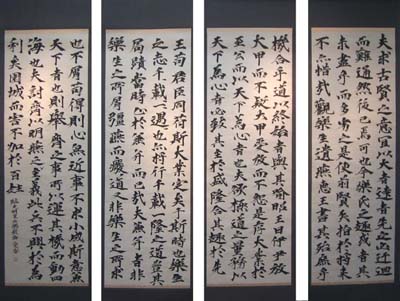 夫求古賢之意宜以大者遠者先之必迂迴
而難通然後已焉可也今樂氏之趣或者其
未盡乎而多劣之是使前賢失指於將來
不亦惜哉觀樂生遺燕惠王書其殆庶乎
機合乎道以終始者與其喻昭王曰伊尹放
大甲而不疑大甲受放而不怨是存大業於
至公而以天下為心者也夫欲極道之量務以
天下為心者必致其主於盛隆合其趣於先
王苟君臣同符斯大業定矣于斯時也樂生
之志千載一遇也亦將行千載一隆之道豈其
局蹟當時止於兼并而已哉夫兼并者非
樂生之所屑彊燕而廢道又非樂生之所求
也不屑苟得則心無近事不求小成斯意兼
天下者也則舉齊之事所以運其機而動四
海也夫討齊以明燕主之義此兵不興於為
利矣圍城而害不加於百姓